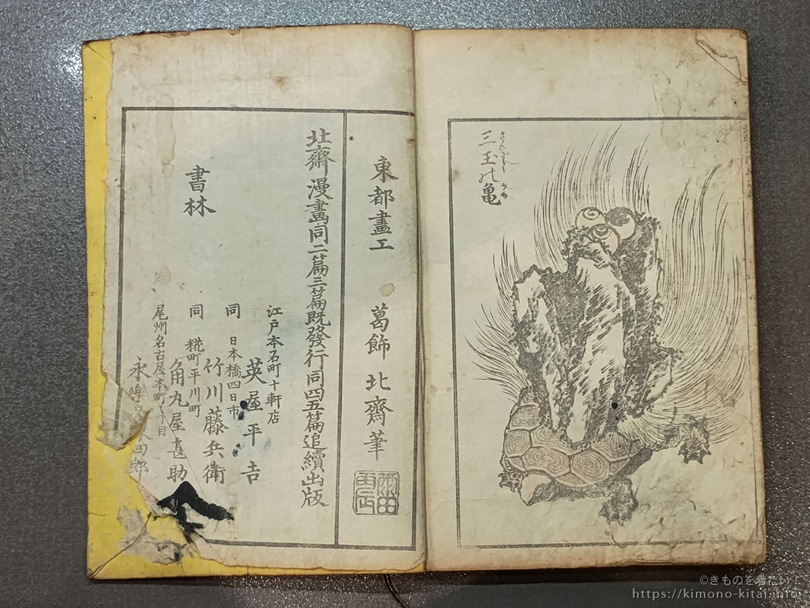 三玉の亀
東都畫工 葛飾北齋筆
北齋漫畫同二篇三篇既發行同四五篇追續出版
江戸本石町十軒店
英屋平吉
同 日本橋四日市
竹川藤兵衛
同 糀町平川町
角丸屋甚助
尾州名古屋本町
永樂 四郎
書林
©きものを着たい！
https://kimono-kitai.info